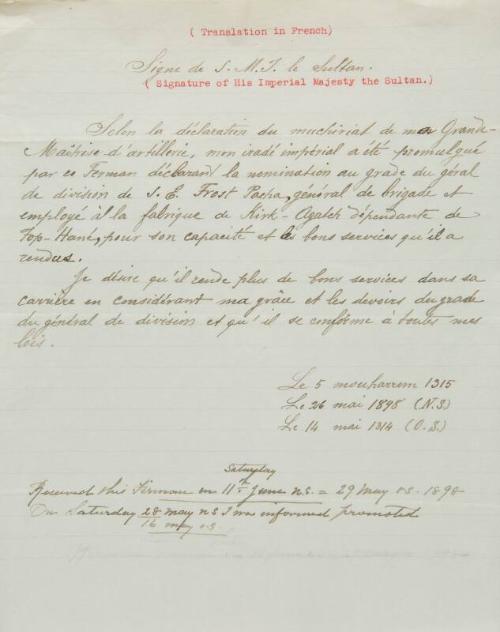 ( Translation in French)
Signe de S. M. I. le Sultan.
( Signature of His Imperial Majesty the Sultan.)
Selon la déclaration du muchiriat de ma Grande
Maîtrise d'artillerie, mon iradé impérial a été promulgué
par ce Ferman déclarant la nomination au grade du géral
de division de S. E. Frost Pacha, général de brigade et
employé à la fabrique de Kirk-Agatch dépendante de
Top-Hané, pour son capacité et les bons services qu'il a
rendus.
Je désire qu'il rende plus de bons services dans sa
carrière en considérant ma grâce et les devoirs du grade
du général de division et qu'il se conforme à toutes mes
lois.
Le 5 mouharrem 1315
Le 26 mai 1898 (N.S)
Le 14 mai 1314 (O.S)
Saturday
Received this Firman on 11th June n.s. = 29 May o.s. 1898
On Saturday 28 May n.s I was informed promoted
16 May o.s.